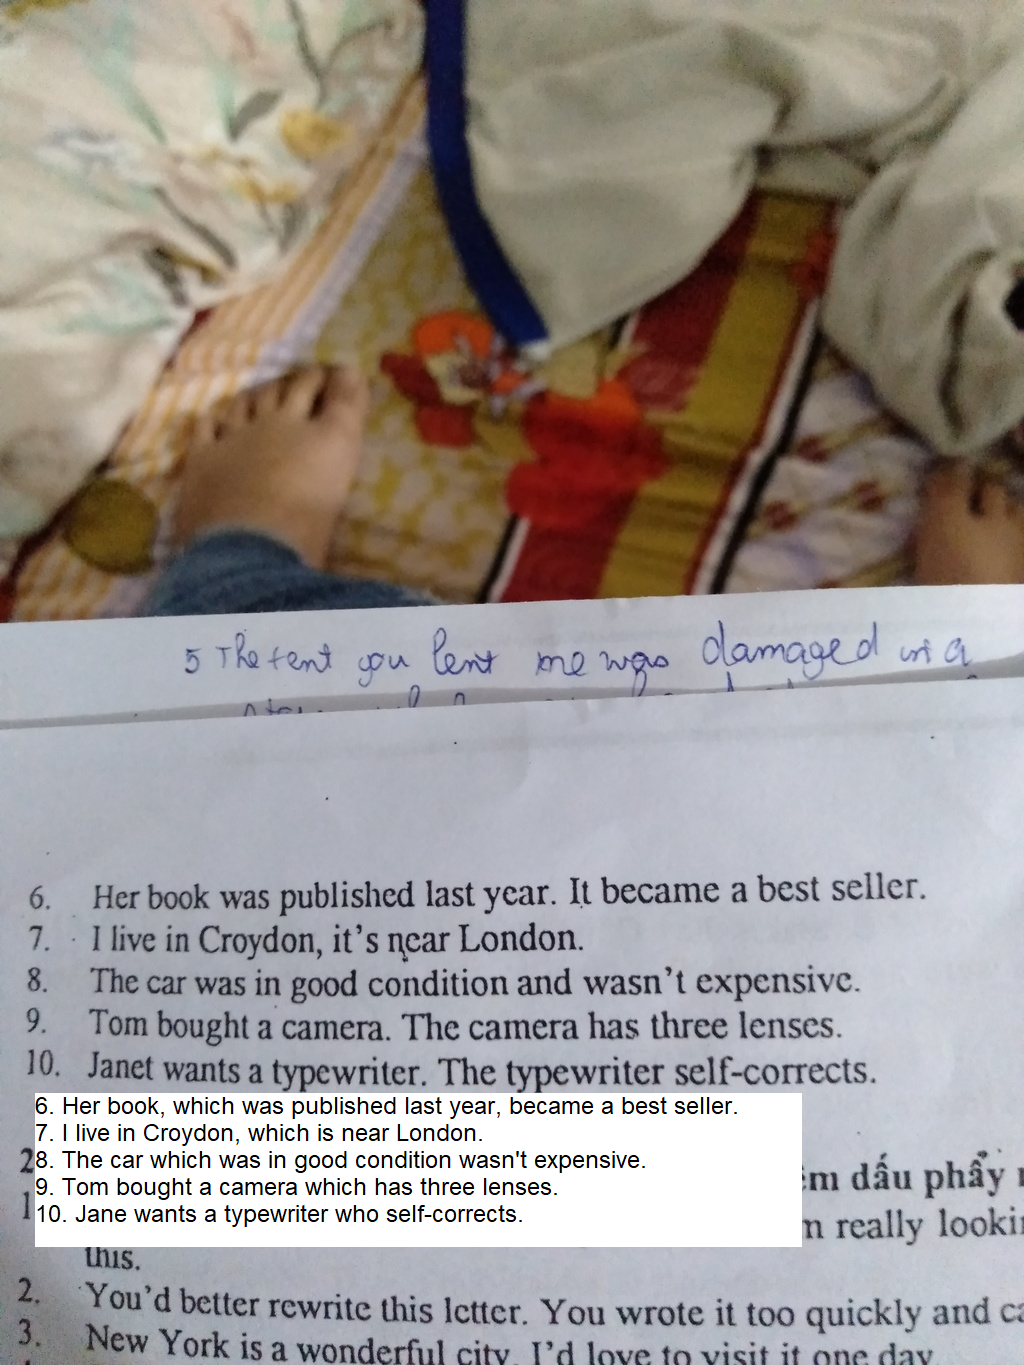 5 The tent you lent me was damaged in a
6. Her book was published last year. It became a best seller.
7. I live in Croydon, it's near London.
8. The car was in good condition and wasn't expensive.
9. Tom bought a camera. The camera has three lenses.
10. Janet wants a typewriter. The typewriter self-corrects.
6. Her book, which was published last year, became a best seller.
7. I live in Croydon, which is near London.
8. The car which was in good condition wasn't expensive.
9. Tom bought a camera which has three lenses.
10. Jane wants a typewriter who self-corrects.
2 dấu phẩy
1 really
this.
2. You'd better rewrite this letter. You wrote it too quickly and
3. New York is a wonderful city. I'd love to visit it one day